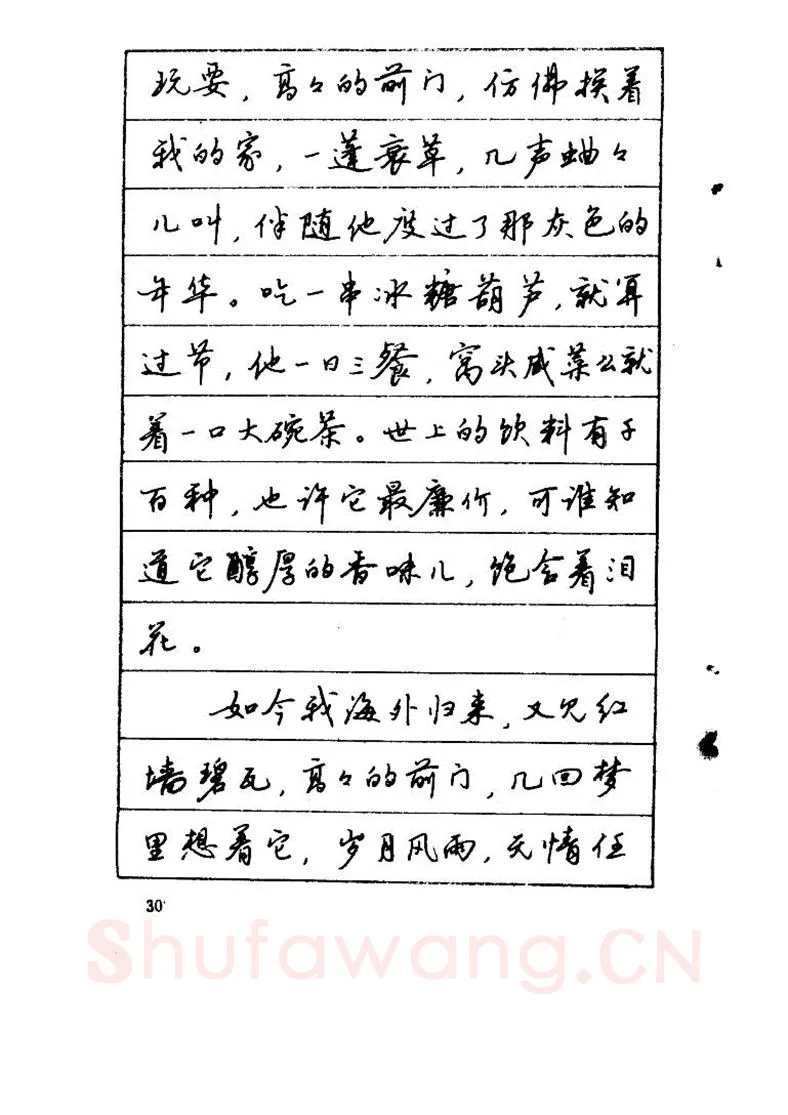 玩耍，高々的前门，仿佛挨着
我的家，一蓬衰草，几声蛐々
儿叫，伴随他度过了那灰色的
年华。吃一串冰糖葫芦，就算
过节，他一日三餐，窝头咸菜么就
着一口大碗茶。世上的饮料有千
百种，也许它最廉价，可谁知
道它醇厚的香味儿，饱含着泪
花。
如今我海外归来，又见红
墙碧瓦，高々的前门，几回梦
里想着它，岁月风雨，无情任
30
Shufawang.CN